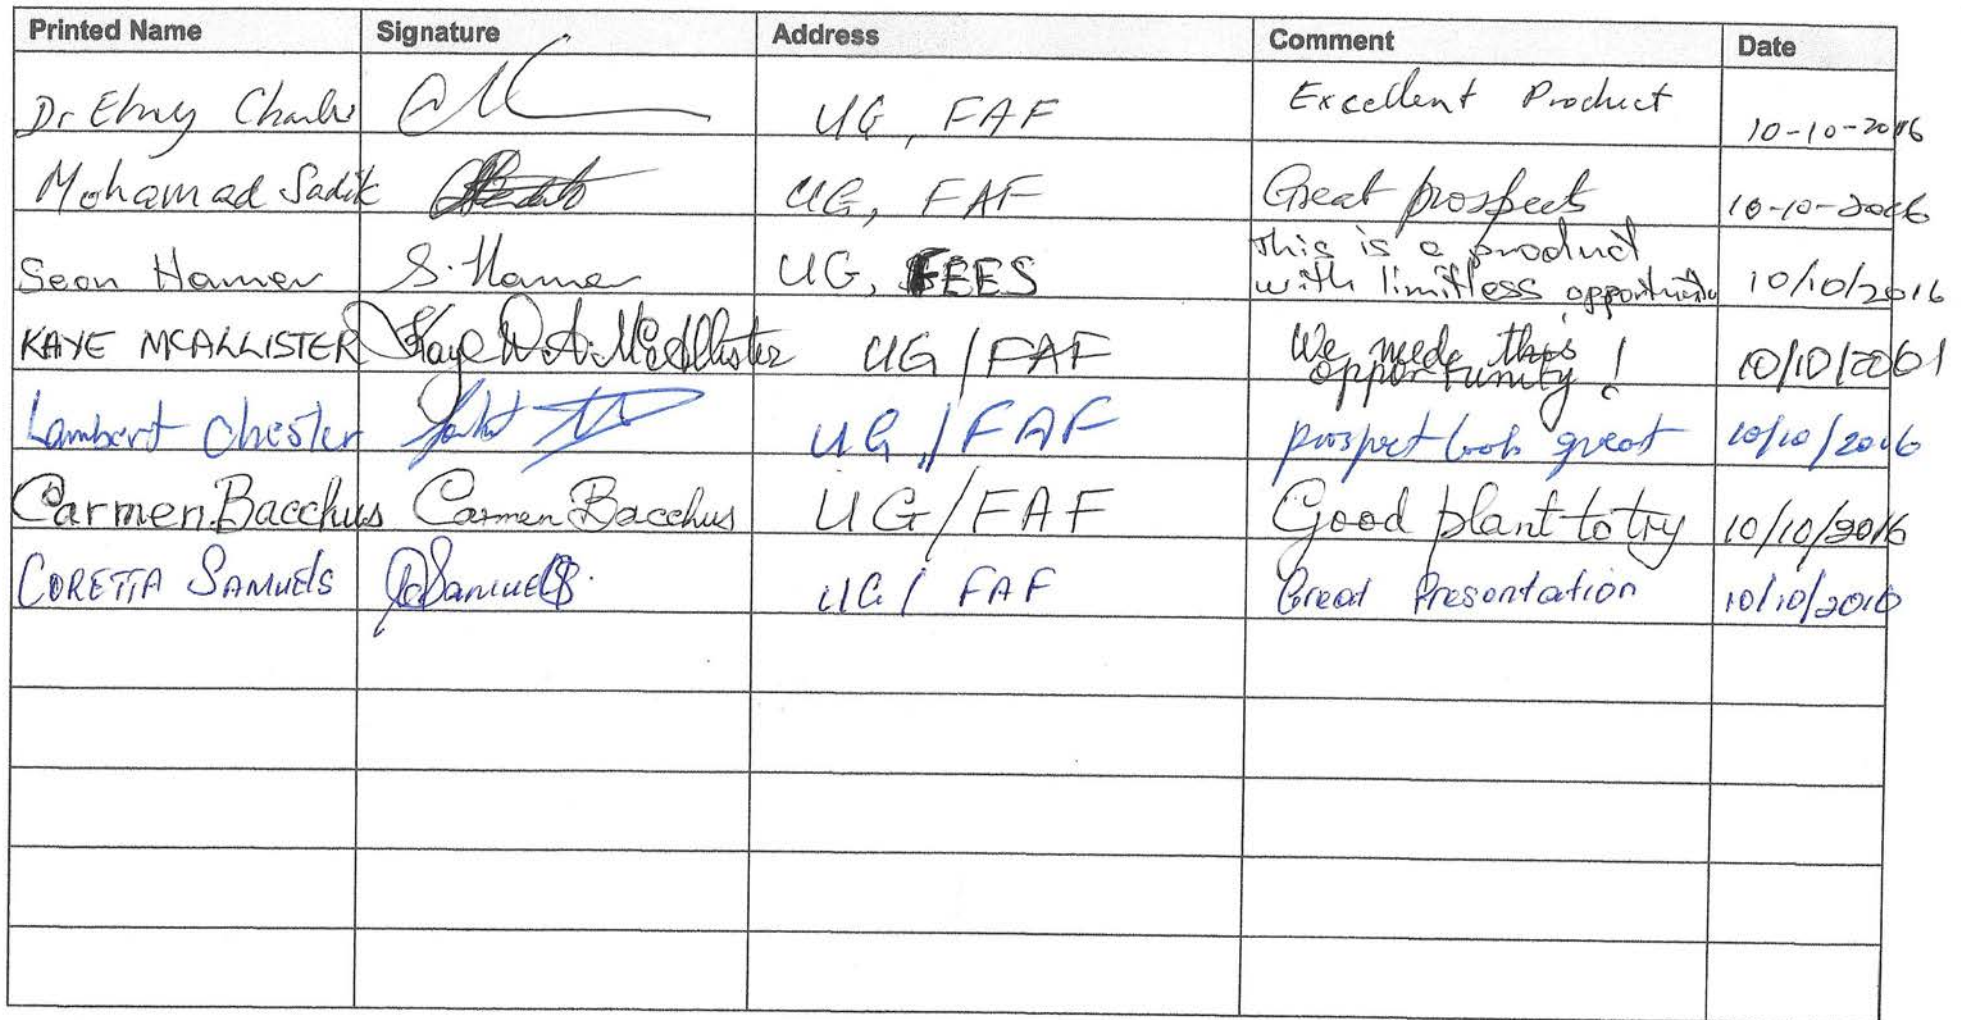 Printed Name Signature Address Comment Date
Dr Charles UG, FAF Excellent Product 10-10-2016
Mohamad Sadik UG, FAF Great prospects 10-10-2016
Seon Hamer S. Hamer UG, FEES This is a product
with limitless opportunity 10/10/2016
KAYE MCALLISTER Kaye D.A. McAllister UG/FAF We need this
opportunity! 10/10/2001
Lambert Chester UG/FAF prospect look great 10/10/2016
Carmen Bacchus Carmen Bacchus UG/FAF Good plant to try 10/10/2016
CORETTA SAMUELS CSamuels UG/ FAF Great Presentation 10/10/2016